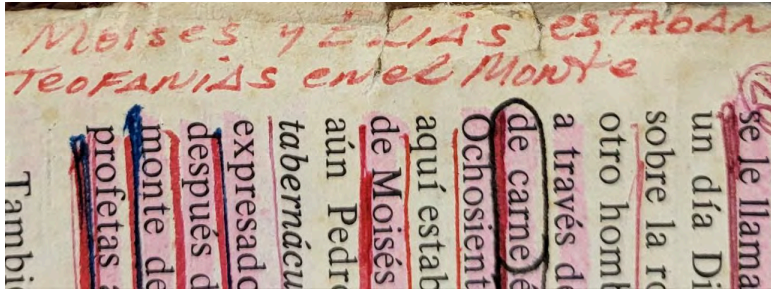 Moises y ELIAS estaban
Teofanias en el Monte
se le llama
un día Di
sobre la ro
otro homb
a través de
de carne é
Ochosient
aquí estab
de Moisés
aún Pedro
tabernácu
expresado
después d
monte de
profetas a
Tambié